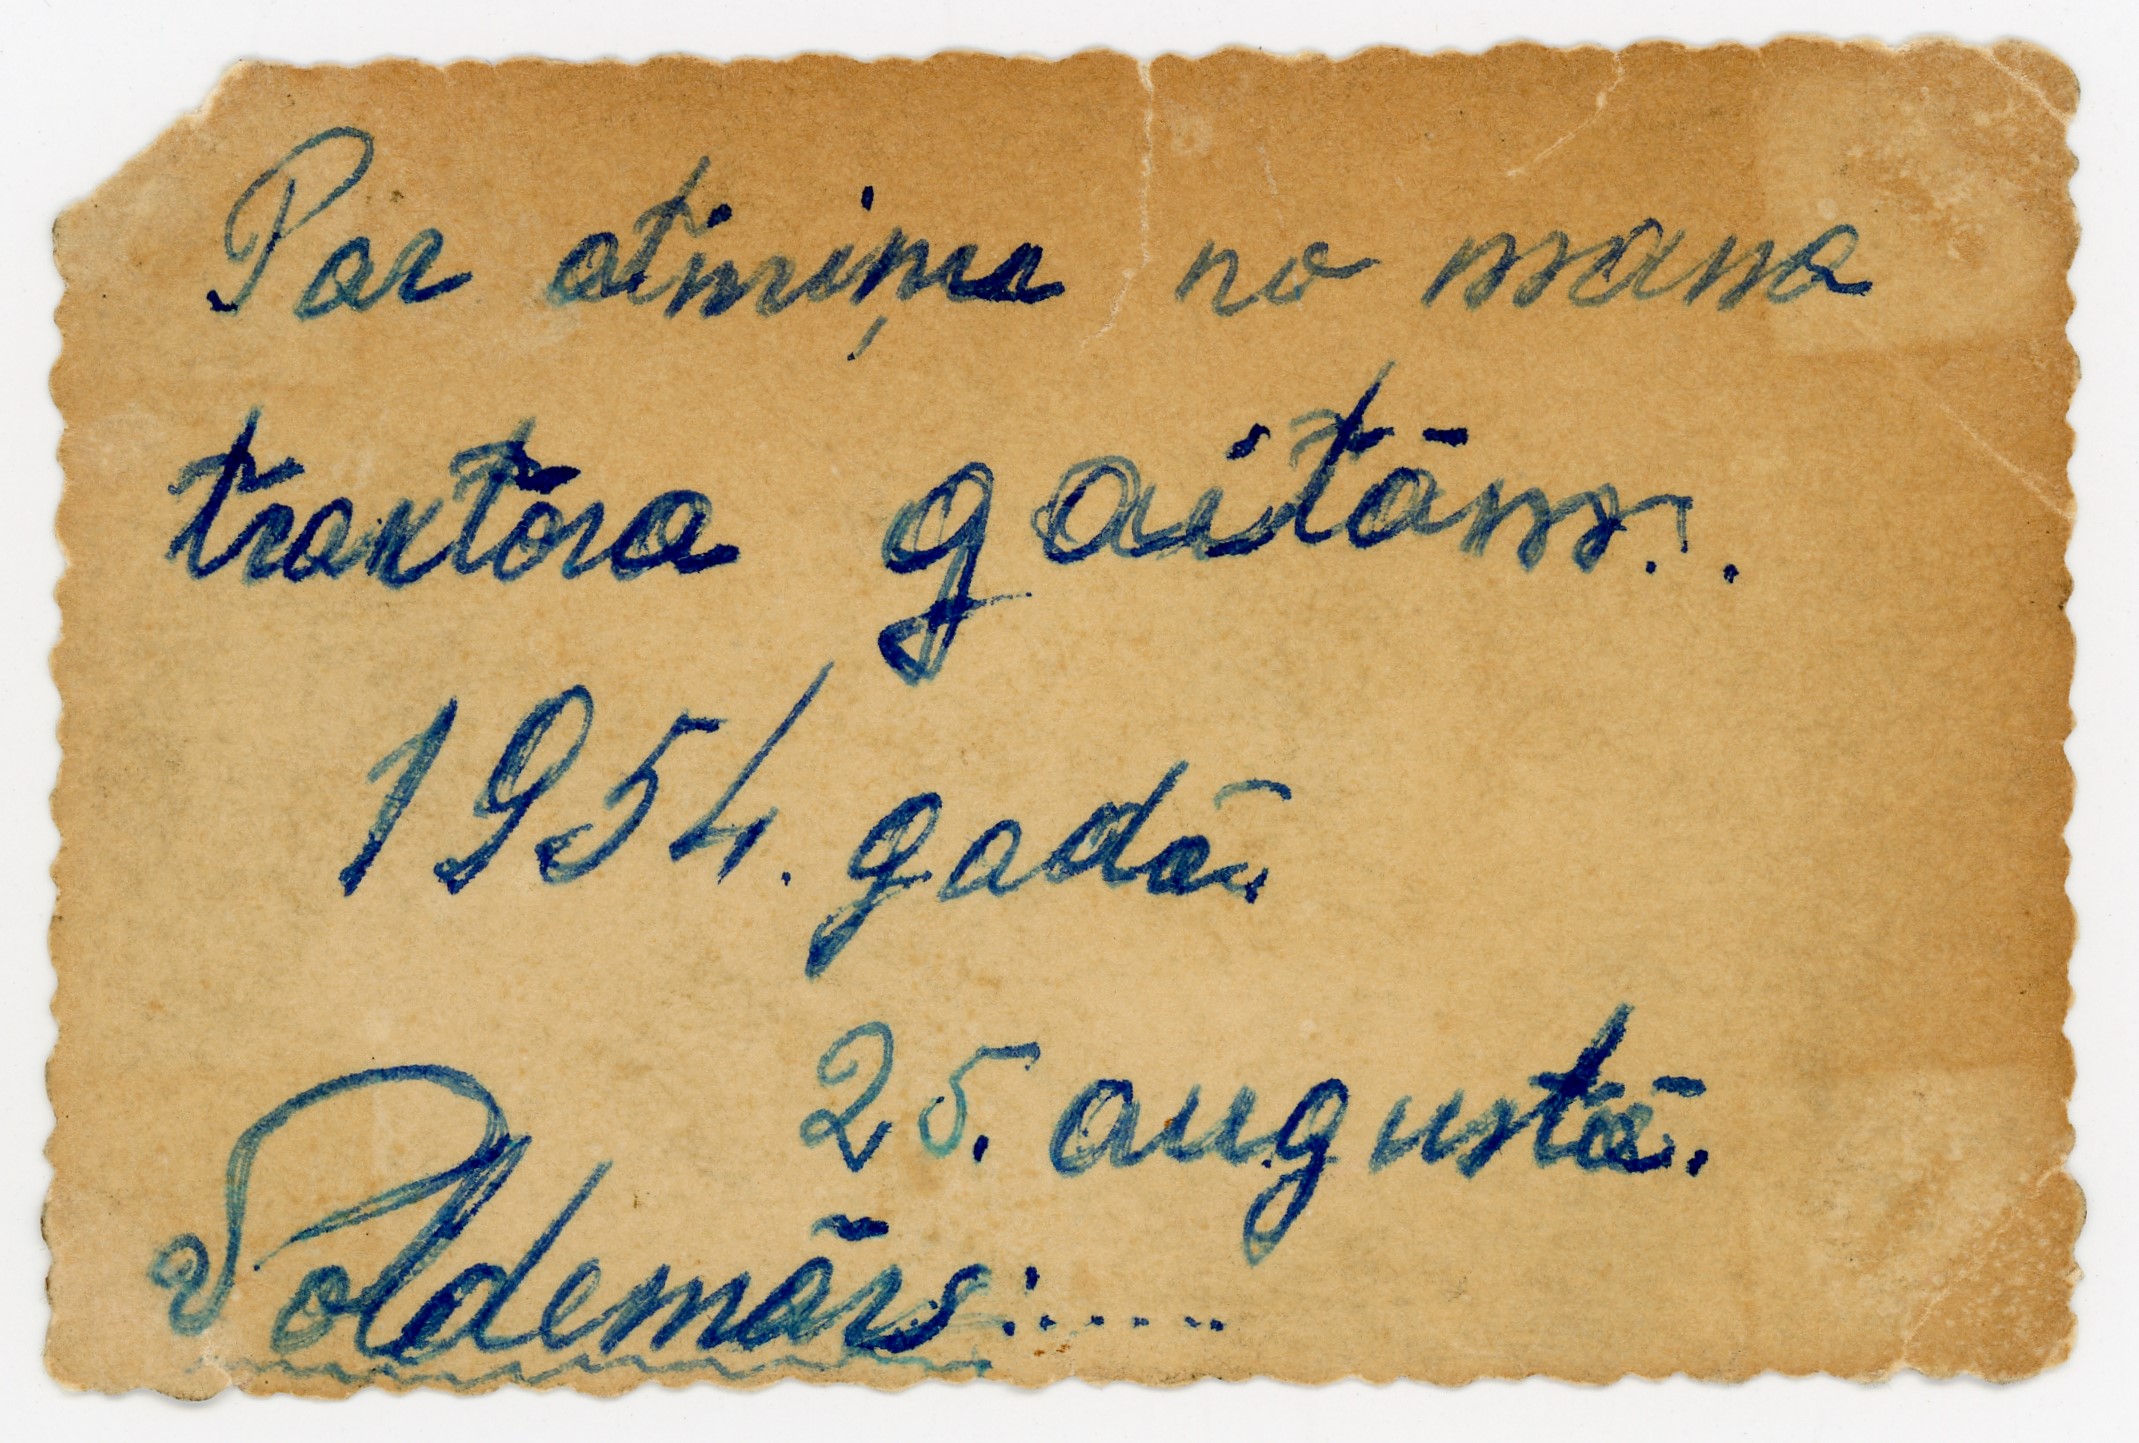 Par atmiņa no mana
traktōra gaitām..
1954. gadā.
25. augustā.
Voldemārs:.....